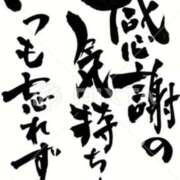 感謝の
気持ち
いつも忘れず